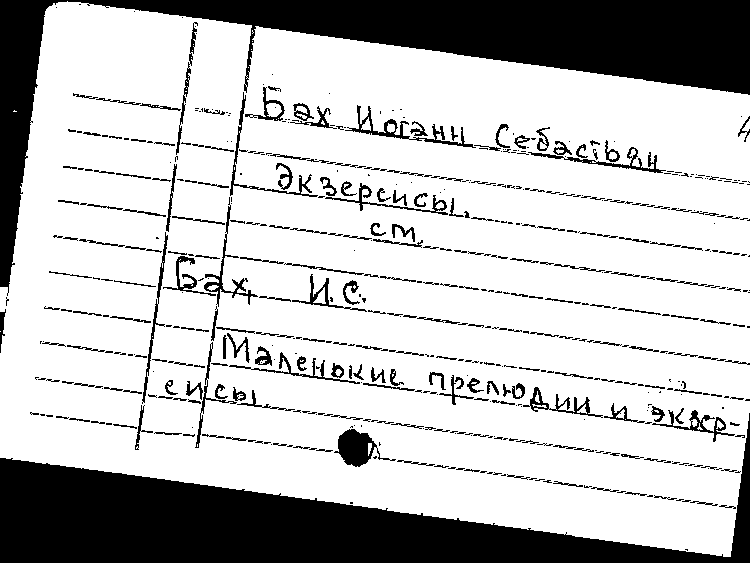 4
Бах Иоганн Себастьян
Экзерсисы.
см.
Бах, И.С.
Маленькие прелюдии и экзер-
сисы.